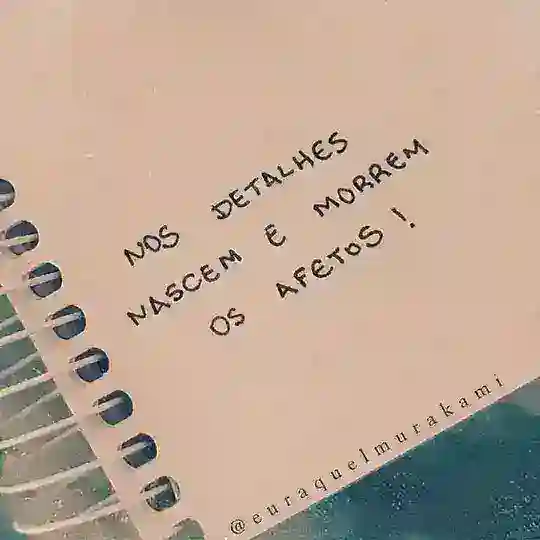 NOS DETALHES
NASCEM E MORREM
OS AFETOS!
@euraquelmurakami